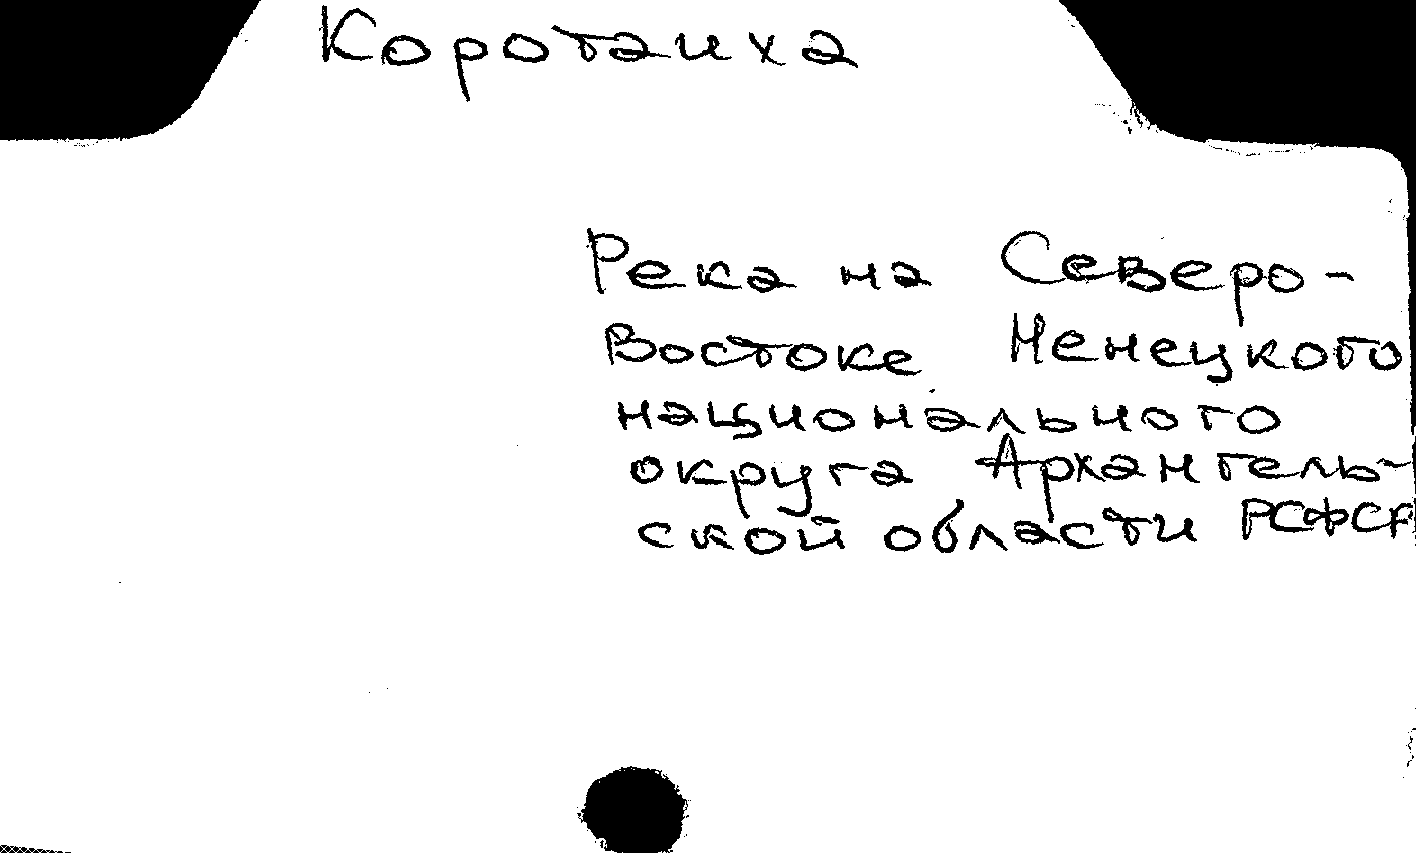 Коротаиха
Река на Северо-
Востоке Ненецкого
национального
округа Архангель-
ской области РСФСР